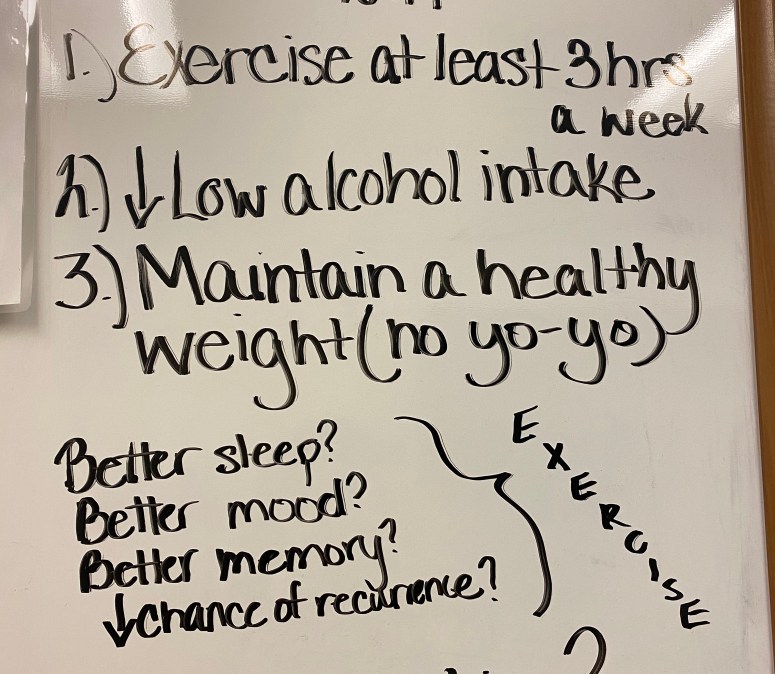 1.) Exercise at least 3hrs
a week
2.) ↓ Low alcohol intake
3.) Maintain a healthy
weight (no yo-yo)
Better sleep?
Better mood?
Better memory?
↓ chance of recurrence?
EXERCISE
?